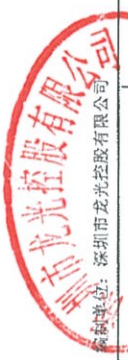 编制单位：深圳市龙光控股有限公司
圳市龙光控股有限公司